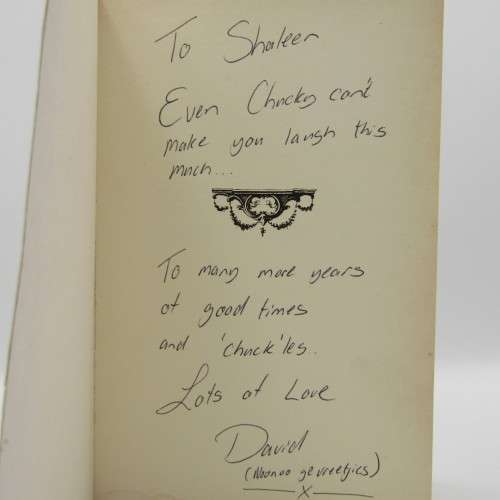 To Shaleen
Even Chucky can't
make you laugh this
much...
To many more years
of good times
and 'chuck'les..
Lots of Love
David
x